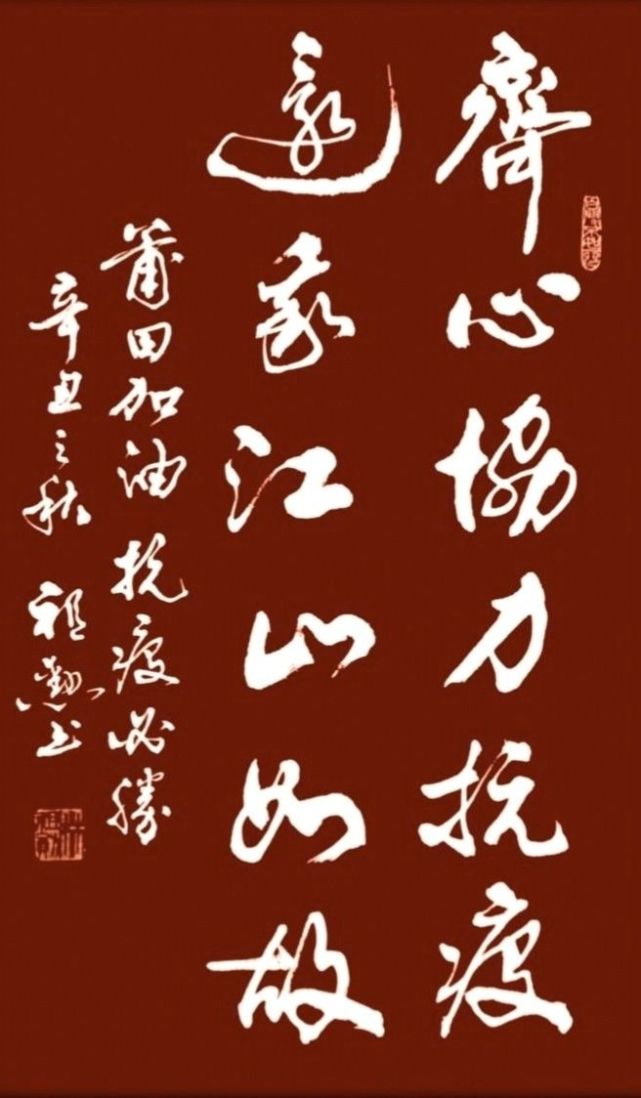 齊心協力抗疫
還我江山如故
莆田加油抗疫必勝
辛丑之秋 祖勳书